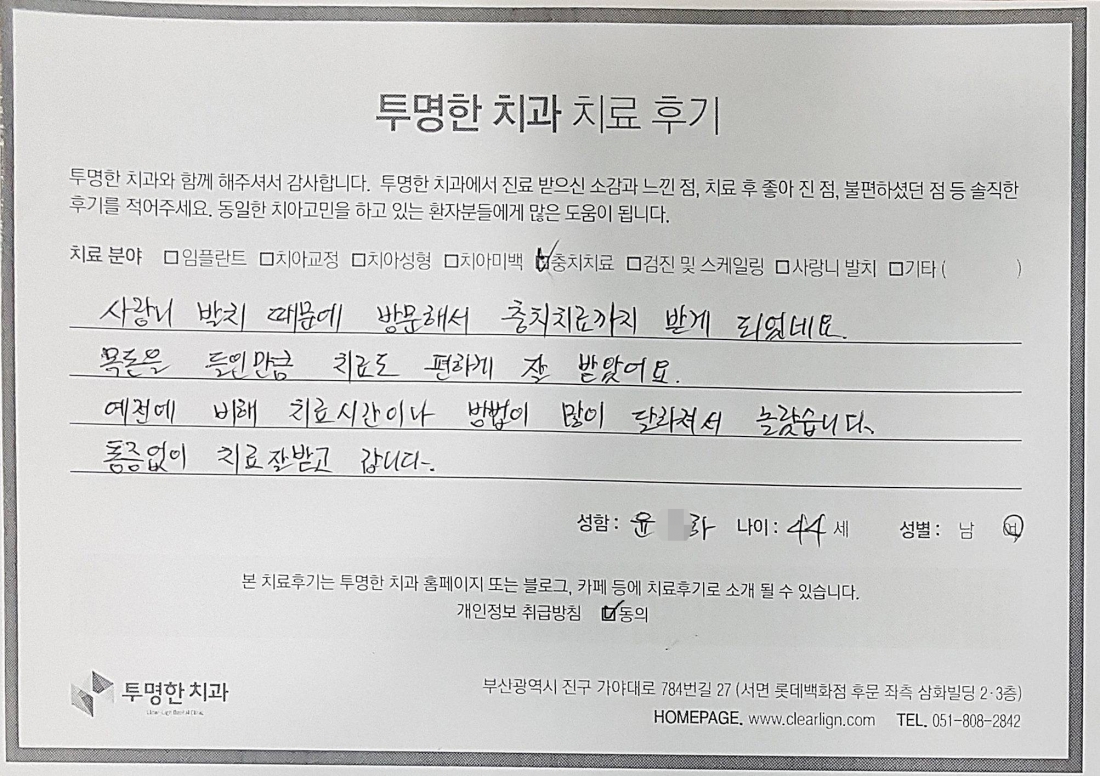 투명한 치과 치료 후기
투명한 치과와 함께 해주셔서 감사합니다. 투명한 치과에서 진료 받으신 소감과 느낀 점, 치료 후 좋아 진 점, 불편하셨던 점 등 솔직한
후기를 적어주세요. 동일한 치아고민을 하고 있는 환자분들에게 많은 도움이 됩니다.
치료 분야 □임플란트 □치아교정 □치아성형 □치아미백 ☑충치치료 □검진 및 스케일링 □사랑니 발치 □기타 ( )
사랑니 발치 때문에 방문해서 충치치료까지 받게 되었네요.
목돈을 들인만큼 치료도 편하게 잘 받았어요.
예전에 비해 치료시간이나 방법이 많이 달라져서 놀랐습니다.
통증없이 치료잘받고 갑니다.
성함 : 윤 라 나이 : 44 세 성별 : 남 여
본 치료후기는 투명한 치과 홈페이지 또는 블로그, 카페 등에 치료후기로 소개 될 수 있습니다.
개인정보 취급방침 ☑동의
투명한 치과
부산광역시 진구 가야대로 784번길 27 (서면 롯데백화점 후문 좌측 삼화빌딩 2·3층)
HOMEPAGE. www.clearlign.com TEL. 051-808-2842